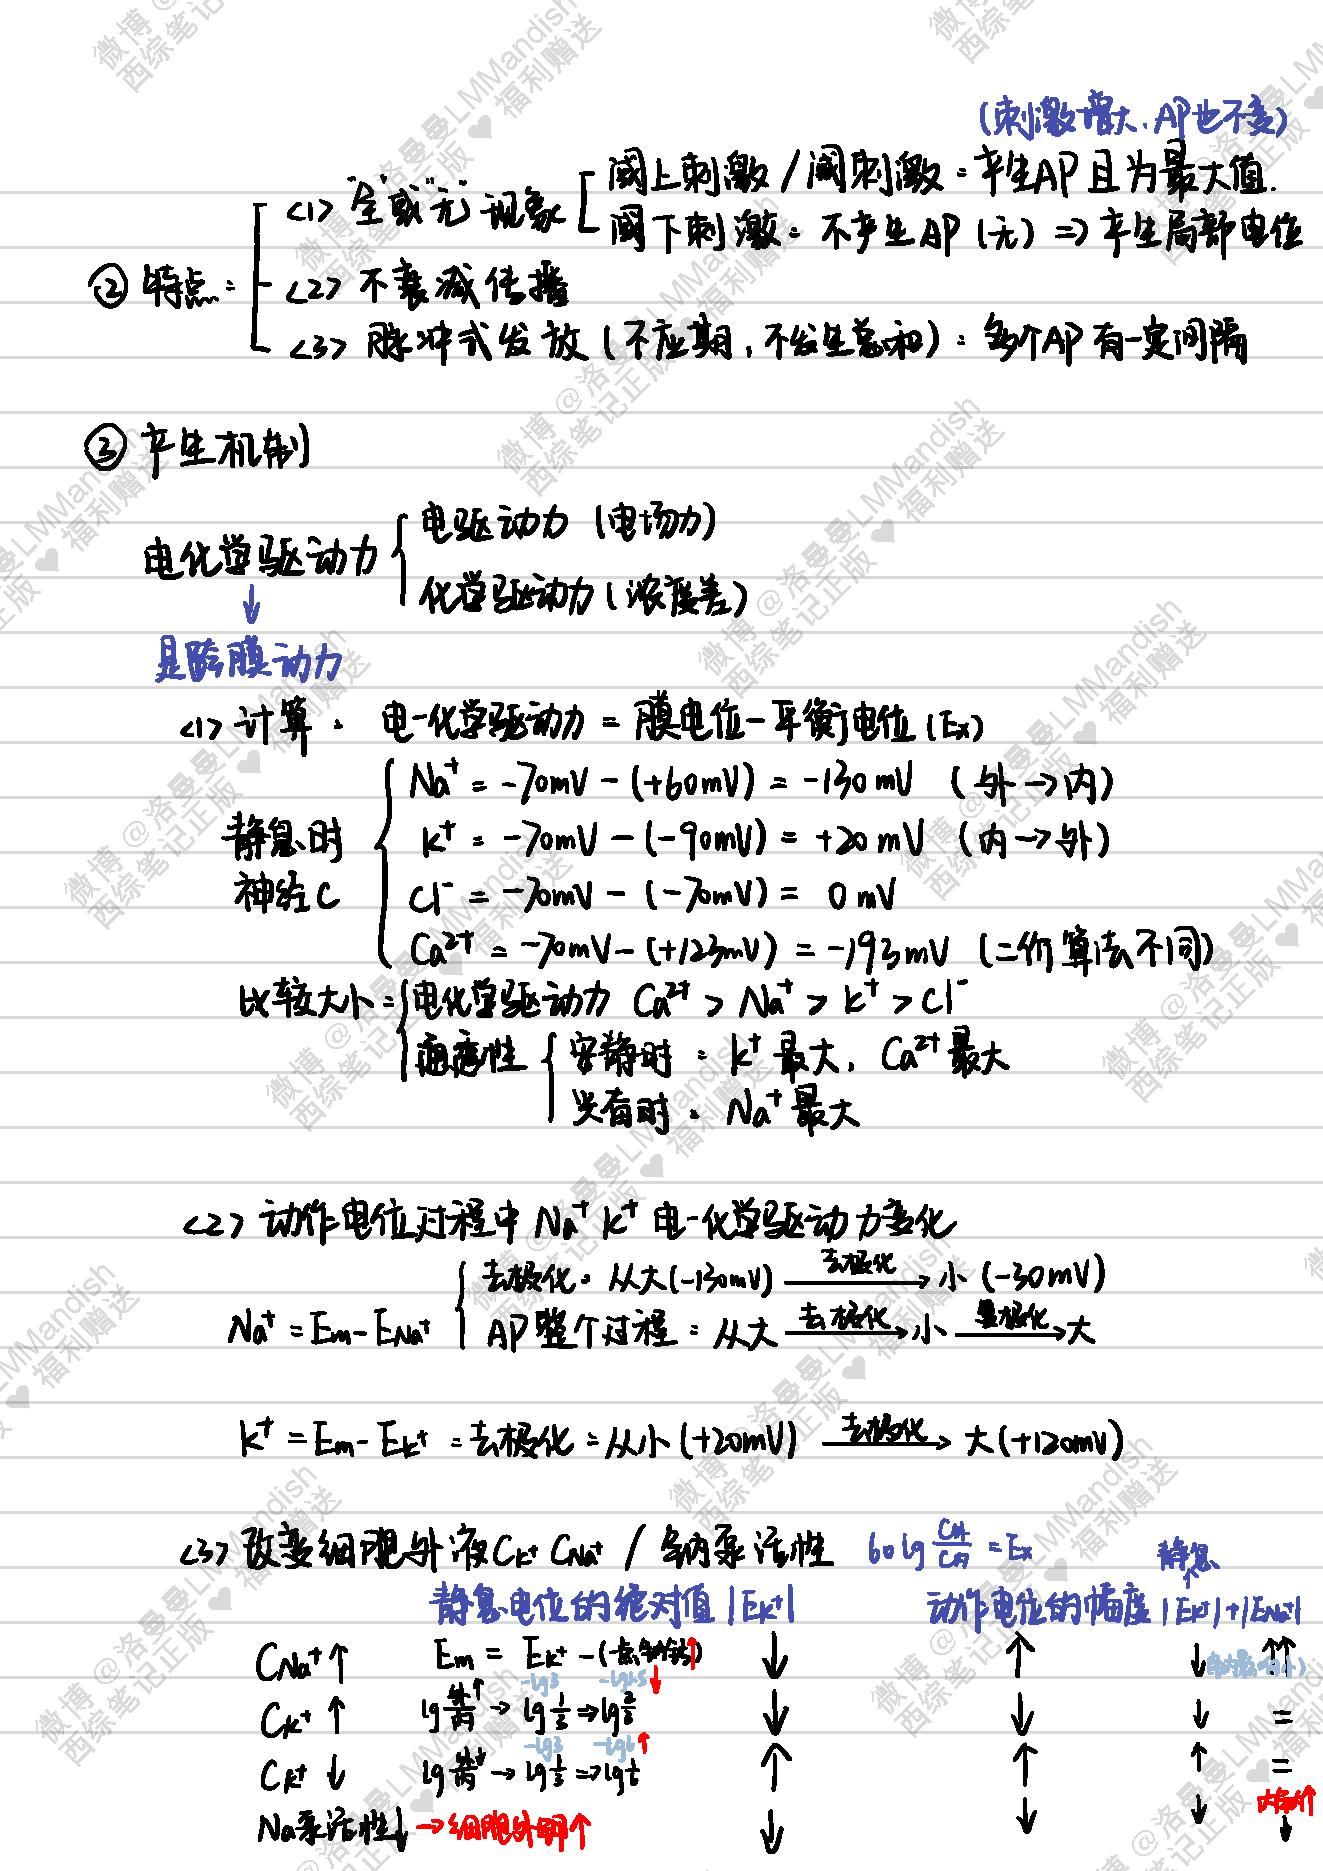 (刺激增大, AP也不变)
② 特点:
<1> "全或"无"现象
阈上刺激/阈刺激: 产生AP且为最大值.
阈下刺激: 不产生AP (无) => 产生局部电位
<2> 不衰减传播
<3> 脉冲式发放 (不应期, 不发生总和): 多个AP有一定间隔
③ 产生机制
电化学驱动力
电驱动力 (电场力)
化学驱动力 (浓度差)
↓
是跨膜动力
<1> 计算: 电-化学驱动力 = 膜电位-平衡电位 (Ex)
静息时
神经C
Na⁺ = -70mV - (+60mV) = -130mV (外→内)
K⁺ = -70mV - (-90mV) = +20mV (内→外)
Cl⁻ = -70mV - (-70mV) = 0mV
Ca²⁺ = -70mV - (+123mV) = -193mV (二价算法不同)
比较大小:
电化学驱动力 Ca²⁺ > Na⁺ > K⁺ > Cl⁻
通透性
安静时: K⁺最大, Ca²⁺最大
兴奋时: Na⁺最大
<2> 动作电位过程中 Na⁺ K⁺ 电-化学驱动力变化
Na⁺ = Em - ENa⁺
去极化: 从大(-130mV) 去极化→ 小 (-30mV)
AP整个过程: 从大 去极化→ 小 复极化→ 大
K⁺ = Em - EK⁺ : 去极化: 从小 (+20mV) 去极化→ 大(+120mV)
<3> 改变细胞外液CK⁺ CNa⁺ / 钠泵活性 60lg C外/C内 = Ex
静息电位的绝对值 |EK⁺| 动作电位的幅度 静息 |EK⁺|+|ENa⁺|
CNa⁺↑ Em = EK⁺ - ( ↑ ↓ ↑ ↓ ↑↑
-lg3 -lg1.5 ↓
CK⁺ ↑ lg 外↑/内 → lg 1/3 ⇒ lg 2/3 ↓ ↓ ↓ =
-lg3 -lg6 ↑
CK⁺ ↓ lg 外↓/内 → lg 1/3 => lg 1/6 ↑ ↑ ↑ =
Na泵活性↓ →细胞外钾↑ ↓ ↓ ↓ 内钠↑ ↓
微博 @洛曼曼LMMandish
西综笔记正版 ♥ 福利赠送